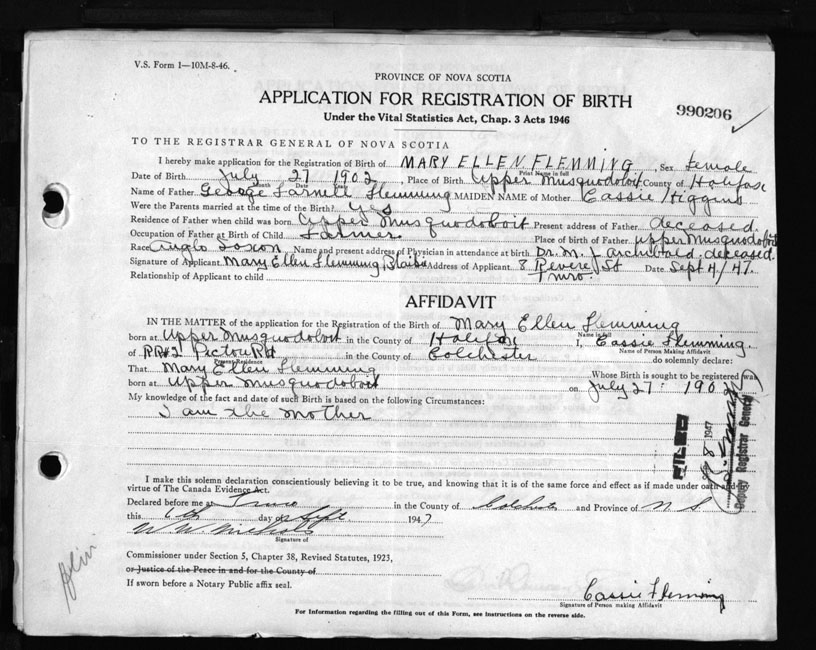 V.S. Form 1—10M-8-46.
PROVINCE OF NOVA SCOTIA
APPLICATION FOR REGISTRATION OF BIRTH
990206
Under the Vital Statistics Act, Chap. 3 Acts 1946
TO THE REGISTRAR GENERAL OF NOVA SCOTIA
I hereby make application for the Registration of Birth of MARY ELLEN FLEMMING, Sex female
Print Name in full
Date of Birth July 27 1902, Place of Birth Upper Musquodoboit County of Halifax
Month Date
Name of Father George Flemming MAIDEN NAME of Mother Cassie Higgins
Were the Parents married at the time of the Birth? yes
Residence of Father when child was born Upper Musquodoboit Present address of Father deceased
Occupation of Father at Birth of Child Farmer Place of birth of Father Upper Musquodoboit
Race Anglo Saxon Name and present address of Physician in attendance at birth Dr. M. J. Archibald, deceased.
Signature of Applicant Mary Ellen Flemming Address of Applicant 8 Revere St Date Sept 4/47.
Relationship of Applicant to child Truro.
AFFIDAVIT
IN THE MATTER of the application for the Registration of the Birth of Mary Ellen Flemming
Name in full
born at Upper Musquodoboit in the County of Halifax I, Cassie Flemming.
Name of Person Making Affidavit
of RR#2 Pictou Rd in the County of Colchester do solemnly declare:
Present Residence
That Mary Ellen Flemming Whose Birth is sought to be registered was
born at Upper Musquodoboit on July 27 190
My knowledge of the fact and date of such Birth is based on the following Circumstances:
I am the mother
FILED
8 1947
Deputy Registrar General
I make this solemn declaration conscientiously believing it to be true, and knowing that it is of the same force and effect as if made under oath and by
virtue of The Canada Evidence Act.
Declared before me at Truro in the County of Colchester and Province of N S
this 6th day of Sept. 1947
W W Nichols
Signature of
Commissioner under Section 5, Chapter 38, Revised Statutes, 1923,
or Justice of the Peace in and for the County of
If sworn before a Notary Public affix seal.
Cassie Flemming
Signature of Person making Affidavit
For Information regarding the filling out of this Form, see instructions on the reverse side.